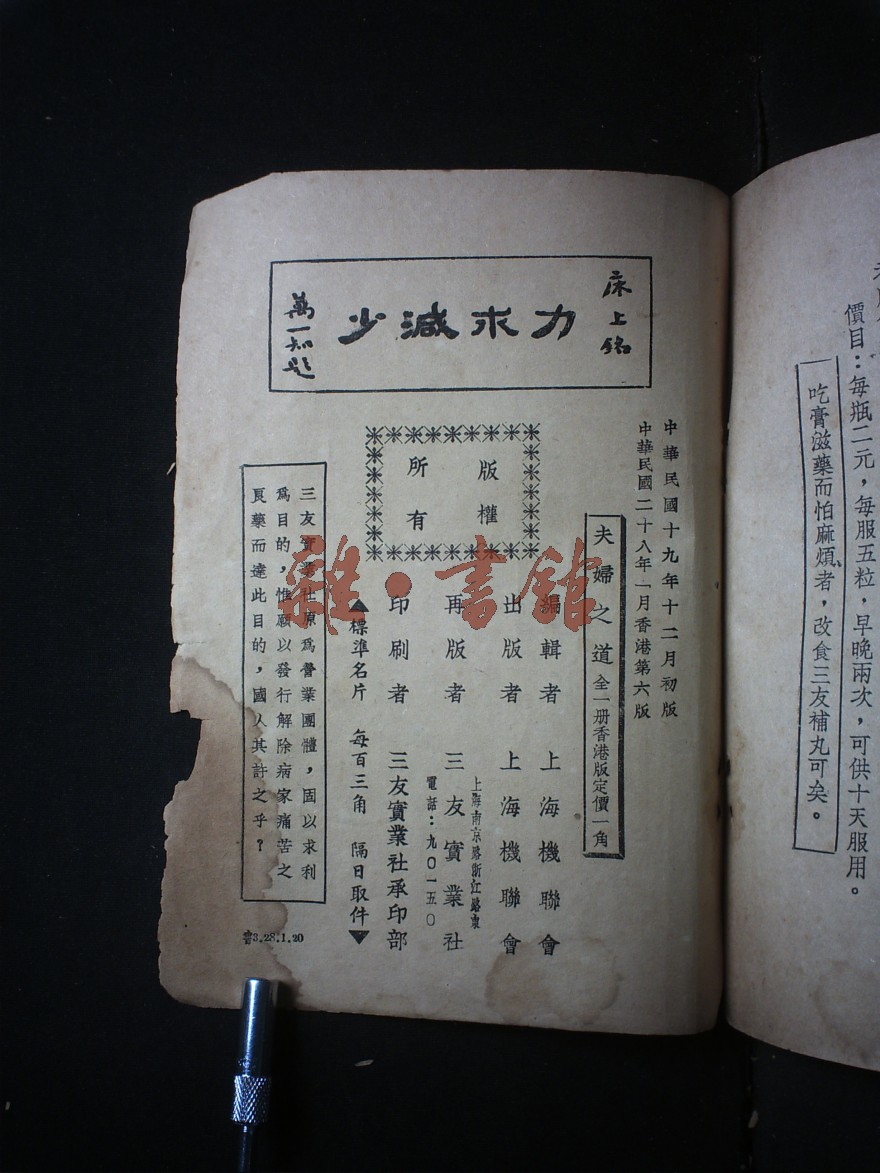 價目：每瓶二元，每服五粒，早晚兩次，可供十天服用。
吃膏滋藥而怕麻煩者，改食三友補丸可矣。
床上銘
力求減少
萬一知題
中華民國十九年十二月初版
中華民國二十八年一月香港第六版
夫婦之道 全一册香港版定價一角
版權
所有
編輯者 上海機聯會
出版者 上海機聯會
再版者 三友實業社
上海南京路浙江路東
電話：九〇一五〇
印刷者 三友實業社承印部
▲標準名片 每百三角 隔日取件▼
三友實業社原爲營業團體，固以求利
爲目的，惟願以發行解除病家痛苦之
良藥而達此目的，國人其許之乎？
書3.28.1.20
雜·書館